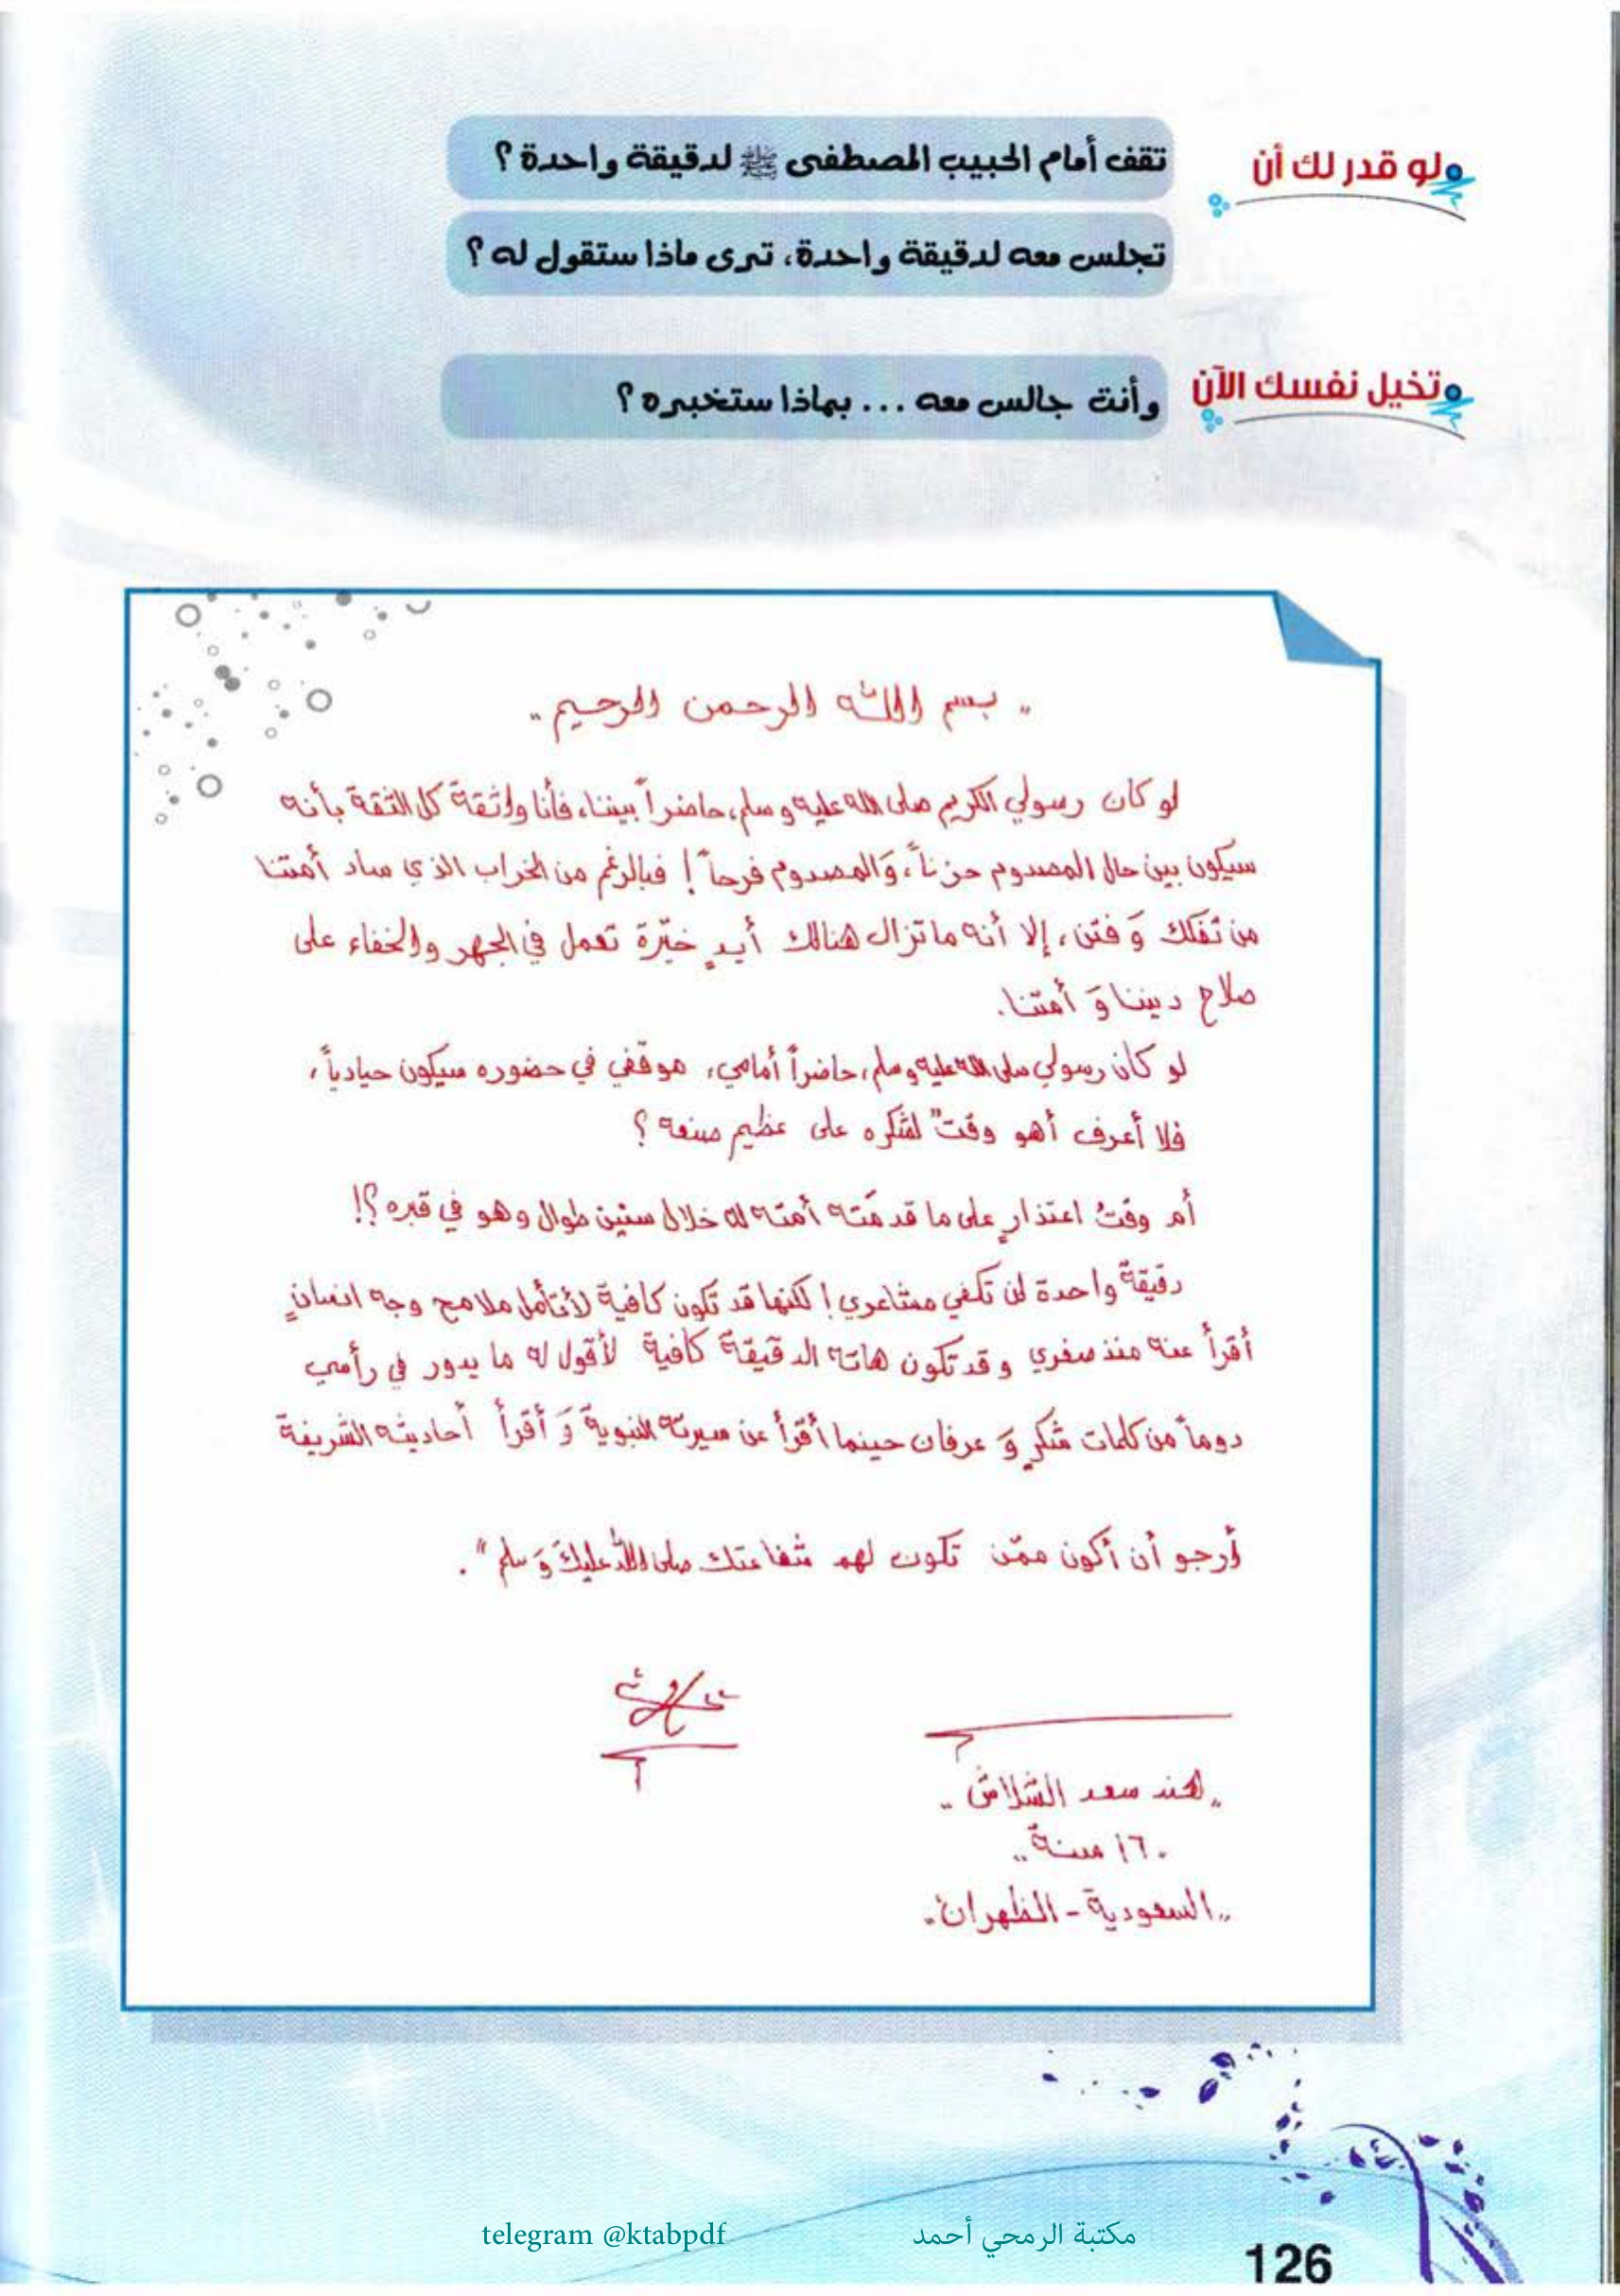 لو قدر لك أن
تقف أمام الحبيب المصطفى ﷺ لدقيقة واحدة ؟
تجلس معه لدقيقة واحدة، ترى ماذا ستقول له ؟
تخيل نفسك الآن
وأنت جالس معه ... بماذا ستخبره ؟
" بسم الله الرحمن الرحيم "
لو كان رسولي الكريم صلى الله عليه وسلم، حاضراً بيننا، فأنا واثقة كل الثقة بأنه
سيكون بين حال المصدوم حزناً، وَالمصدوم فرحاً! فبالرغم من الخراب الذي ساد أمتنا
من تفكك وَ فتن، إلا أنه ما تزال هنالك أيدٍ خيّرة تعمل في الجهر والخفاء على
صلاح ديننا وَ أمتنا.
لو كان رسولي صلى الله عليه وسلم، حاضراً أمامي، موقفي في حضوره سيكون حيادياً،
فلا أعرف أهو وقتٌ لشكره على عظيم صنعه ؟
أم وقتُ اعتذارٍ على ما قدمَته أمته له خلال سنين طوال وهو في قبره ؟!
دقيقةٌ واحدة لن تكفي مشاعري! لكنها قد تكون كافية لأتأمل ملامح وجه انسانٍ
أقرأ عنه منذ صغري وقد تكون هاته الدقيقة كافية لأقول له ما يدور في رأسي
دوماً من كلمات شكرٍ وَ عرفان حينما أقرأ عن سيرته النبوية وَ أقرأ أحاديثه الشريفة
أرجو أن أكون ممّن تكون لهم شفاعتك صلى الله عليكَ وَ سلم".
"هند سعد الشلاش"
"١٦ سنة"
"السعودية - الظهران"
telegram @ktabpdf مكتبة الرمحي أحمد
126